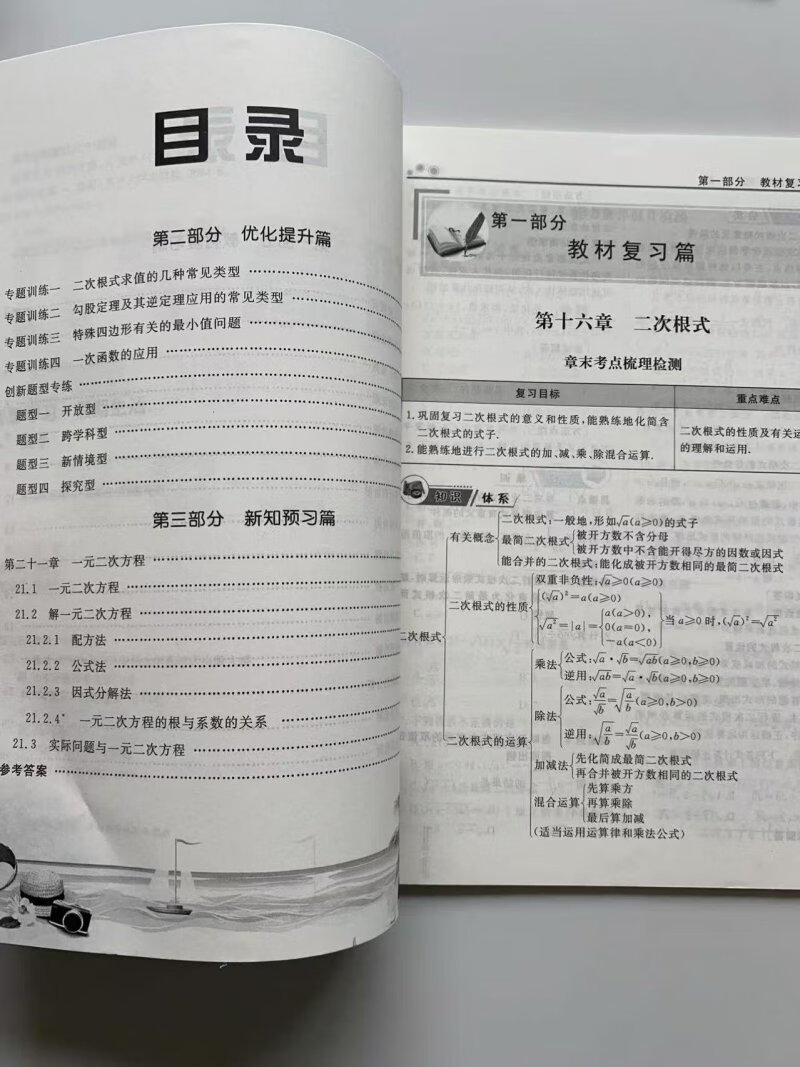 目录
第二部分 优化提升篇
专题训练一 二次根式求值的几种常见类型
专题训练二 勾股定理及其逆定理应用的常见类型
专题训练三 特殊四边形有关的最小值问题
专题训练四 一次函数的应用
创新题型专练
题型一 开放型
题型二 跨学科型
题型三 新情境型
题型四 探究型
第三部分 新知预习篇
第二十一章 一元二次方程
21.1 一元二次方程
21.2 解一元二次方程
21.2.1 配方法
21.2.2 公式法
21.2.3 因式分解法
21.2.4* 一元二次方程的根与系数的关系
21.3 实际问题与一元二次方程
参考答案
第一部分 教材复习
第一部分
教材复习篇
第十六章 二次根式
章末考点梳理检测
复习目标
重点难点
1.巩固复习二次根式的意义和性质,能熟练地化简含
二次根式的式子.
2.能熟练地进行二次根式的加、减、乘、除混合运算.
二次根式的性质及有关运
的理解和运用.
知识 体系
二次根式
有关概念
二次根式:一般地,形如√a(a≥0)的式子
最简二次根式
被开方数不含分母
被开方数中不含能开得尽方的因数或因式
能合并的二次根式:能化成被开方数相同的最简二次根式
二次根式的性质
双重非负性:√a≥0(a≥0)
(√a)²=a(a≥0)
√a²=|a|=
a(a>0),
0(a=0),
-a(a<0)
当a≥0时,(√a)²=√a²
二次根式的运算
乘法
公式:√a·√b=√ab(a≥0,b≥0)
逆用:√ab=√a·√b(a≥0,b≥0)
除法
公式:√a/√b=√(a/b)(a≥0,b>0)
逆用:√(a/b)=√a/√b(a≥0,b>0)
加减法
先化简成最简二次根式
再合并被开方数相同的二次根式
混合运算
先算乘方
再算乘除
最后算加减
(适当运用运算律和乘法公式)